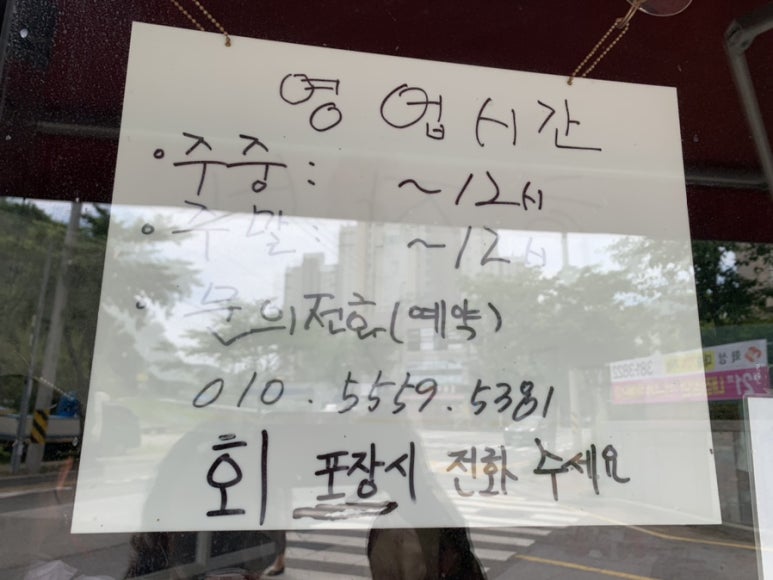 영업시간
• 주중 : ~12시
• 주말 : ~12시
• 문의전화(예약)
010.5559.5381
회 포장시 전화 주세요
381-3822